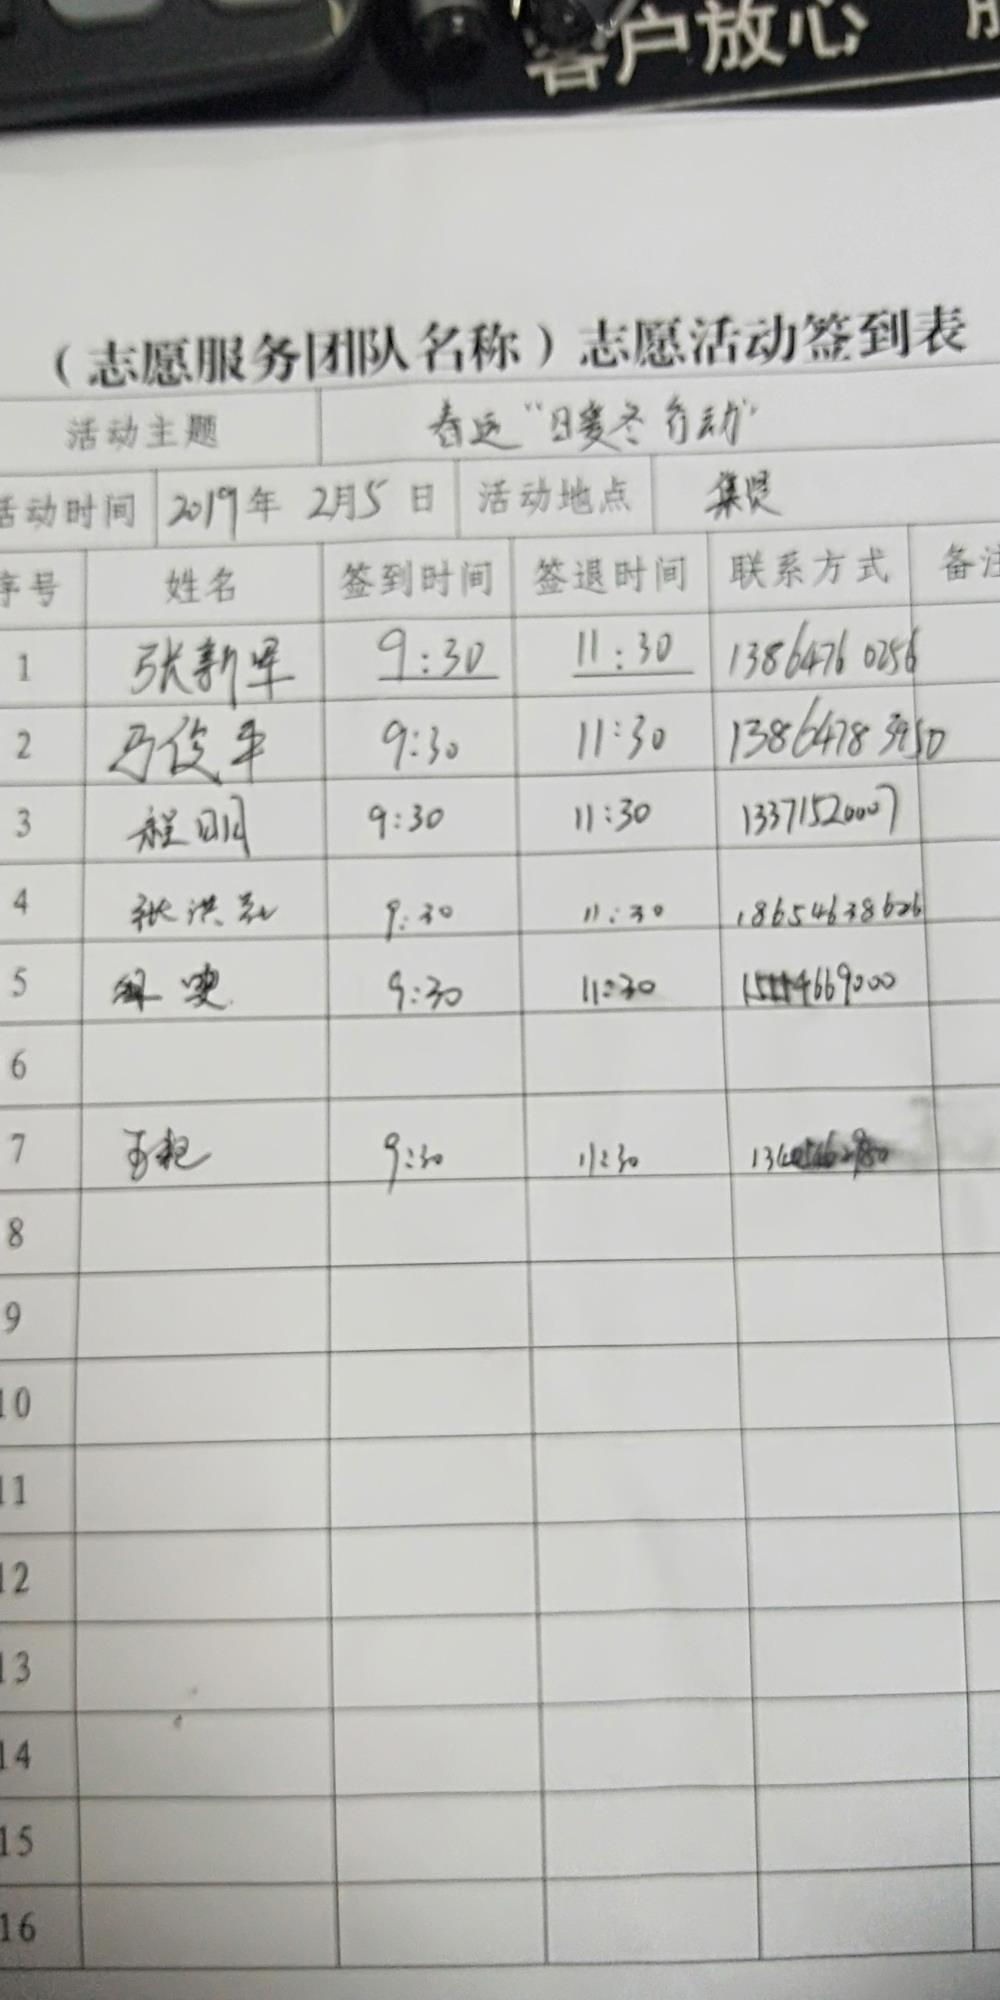 客户放心 服
（志愿服务团队名称）志愿活动签到表
活动主题 春运“日暖冬行动”
活动时间 2019年 2月5日 活动地点 集贤
序号 姓名 签到时间 签退时间 联系方式 备注
1 张新军 9:30 11:30 13864760256
2 马俊平 9:30 11:30 13864783950
3 程明 9:30 11:30 13371520007
4 张洪 9:30 11:30 18654638626
5 9:30 11:30
6
7 9:30 11:30
8
9
10
11
12
13
14
15
16